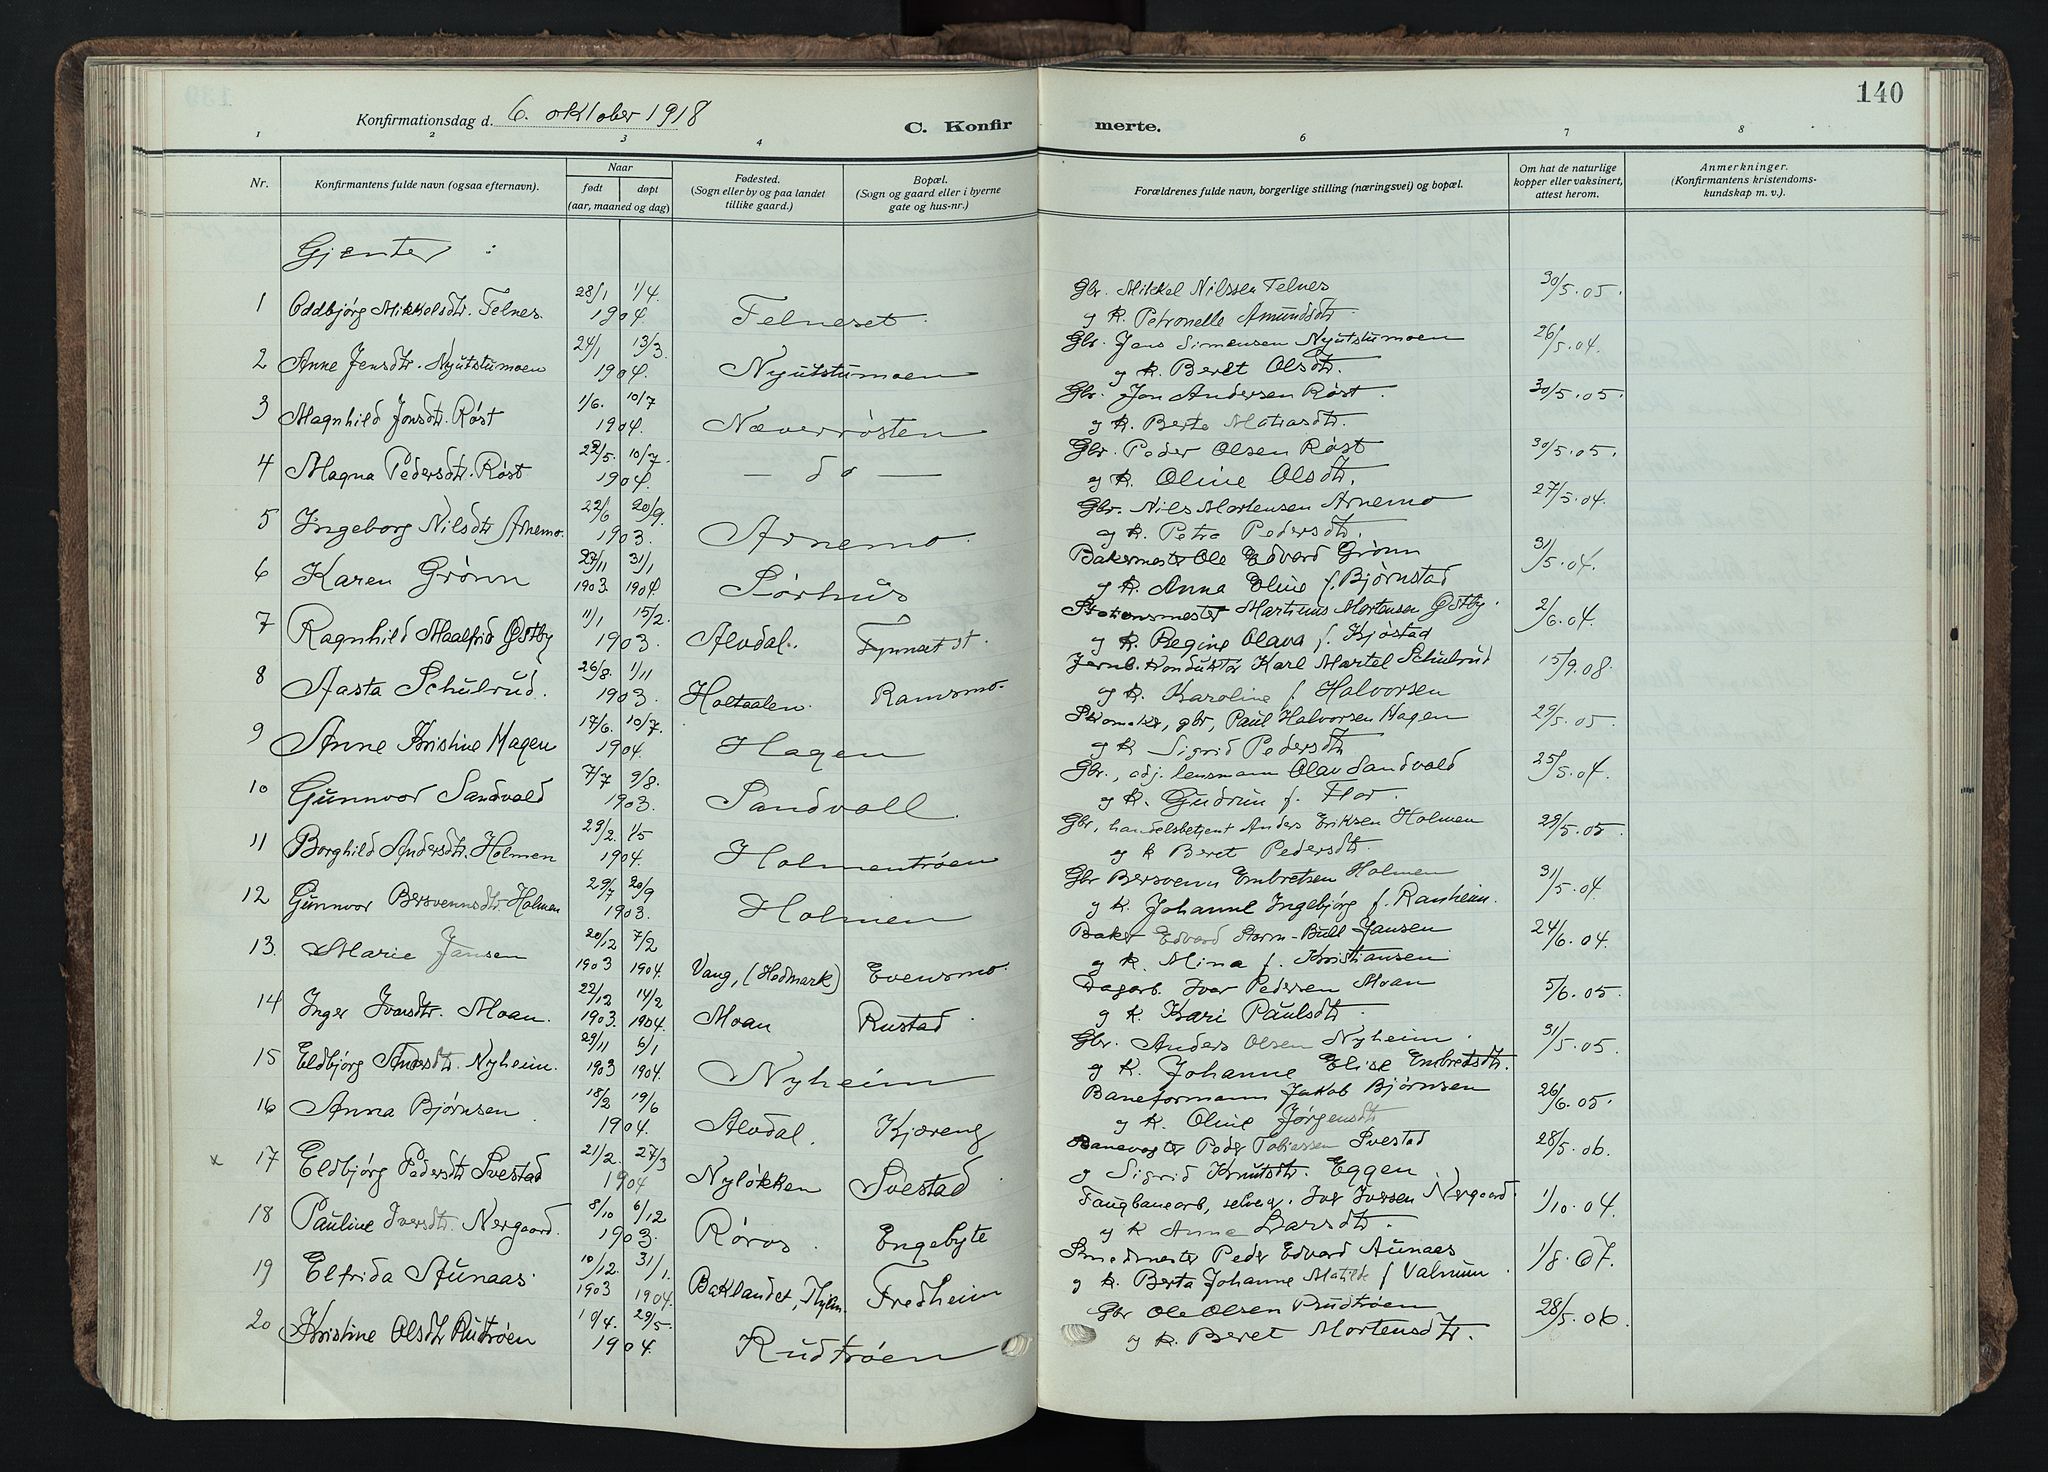 140
Konfirmationsdag d. 6. oktober 1918
C. Konfirmerte.
1 2 3 4 5 6 7 8
Nr. Konfirmantens fulde navn (ogsaa efternavn). Naar født døpt (aar, maaned og dag) Fødested. (Sogn eller by og paa landet tillike gaard.) Bopæl. (Sogn og gaard eller i byerne gate og hus-nr.) Forældrenes fulde navn, borgerlige stilling (næringsvei) og bopæl. Om hat de naturlige kopper eller vaksinert, attest herom. Anmerkninger. (Konfirmantens kristendomskundskap m. v.).
Gjenter :
1 Oddbjørg Mikkelsdtr. Telnes. 28/1 1/4. 1904 Telneset. Gbr. Mikkel Nilssen Telnes 30/5.05.
og k. Petronelle Amundsdtr
2 Anne Jensdtr. Nyutstumoen 24/1 13/3. 1904. Nyutstumoen Gbr. Jens Simensen Nyutstumoen 26/5.04.
og k. Beret Olsdtr.
3 Magnhild Jonsdtr. Røst 1/6. 10/7 1904. Næverrøsten Gbr. Jon Andersen Røst. 30/5.05.
og k. Berte Matiasdtr.
4 Magna Pedersdtr. Røst 22/5. 10/7. 1904. — do — Gbr. Peder Olsen Røst 30/5.05.
og k. Oline Olsdtr.
5 Ingeborg Nilsdtr Arnemo. 22/6 20/9. 1903. Arnemo. Gbr. Nils Mortensen Arnemo 27/5.04.
og k. Petra Pedersdtr.
6 Karen Grønn 27/11 31/1 1903 1904 Sørhus Bakermester Ole Edvard Grønn 31/5.04.
og k. Anna Eline f. Bjørnstad
7 Ragnhild Maalfrid Østby 11/1 15/2. 1903. Alvdal. Tynset st. Stationsmester Martinus Mortensen Østby. 2/6.04.
og k. Regine Olava f. Kjøstad
8 Aasta Schulrud. 26/8. 1/11 1903. Holtaalen. Ramsmo. Jernb. konduktør Karl Martel Schulrud 15/9.08.
og k. Karoline f. Halvorsen
9 Anne Kristine Hagen 17/6. 10/7. 1904. Hagen Skomaker, gbr, Paul Halvorsen Hagen 29/5.05.
og k Sigrid Pedersdtr
10 Gunnvor Sandvold 7/7 9/8. 1903. Sandvoll. Gbr., adj. lensmann Olav Sandvold 25/5.04.
og k. Gudrun f. Flor.
11 Borghild Andersdtr. Holmen 29/2. 1/5 1904. Holmentrøen Gbr, handelsbetjent Anders Eriksen Holmen 29/5.05.
og k Beret Pedersdtr.
12 Gunnvor Bersvennsdtr. Holmen 29/7 20/9 1903. Holmen Gbr Bersvenn Embretsen Holmen 31/5.04.
og k. Johanne Ingebjørg f. Ranheim.
13. Marie Jansen 20/12 7/2 1903 1904. Vang, (Hedmark) Evensmo. Baker Edvard Storm-Bull Jansen 24/6.04.
og k. Mina f. Kristiansen
14 Inger Iversdtr. Moan. 22/12 14/2 1903. 1904. Moan Rustad Dagarb. Iver Pedersen Moan 5/6.05.
og k. Kari Paulsdtr.
15 Eldbjørg Andersdtr. Nyheim. 29/11 6/1 1903 1904. Nyheim Gbr. Anders Olsen Nyheim. 31/5.05.
og k. Johanne Elise Embretsdtr.
16 Anna Bjørnsen. 18/2 19/6 1904. Alvdal. Kjæreng Baneformann Jakob Bjørnsen 26/6.05.
og k. Oline Jørgensdtr
x 17 Eldbjørg Pedersdtr Svestad 21/2. 27/3 1904 Nyløkken Svestad Banevogter Peder Tobiassen Svestad 28/5.06.
og Sigrid Knutsdtr. Eggen
18 Pauline Iversdtr. Nergaard. 8/10 6/12 1903. Røros. Engebyte Faugbanearb, selveg. Iver Iversen Nergaard. 1/10.04.
og k Anne Larsdtr.
19 Elfrida Aunaas. 10/12. 31/1. 1903 1904. Baklandet, Thjem. Fredheim Smedmester Peder Edvard Aunaas 1/8.07.
og k. Berta Johanne Matilde f Valmum.
20 Kristine Olsdtr Rudtrøen 19/4. 29/5. 1904. Rudtrøen Gbr Ole Olsen Rudtrøen 28/5.06.
og k. Beret Mortensdtr.